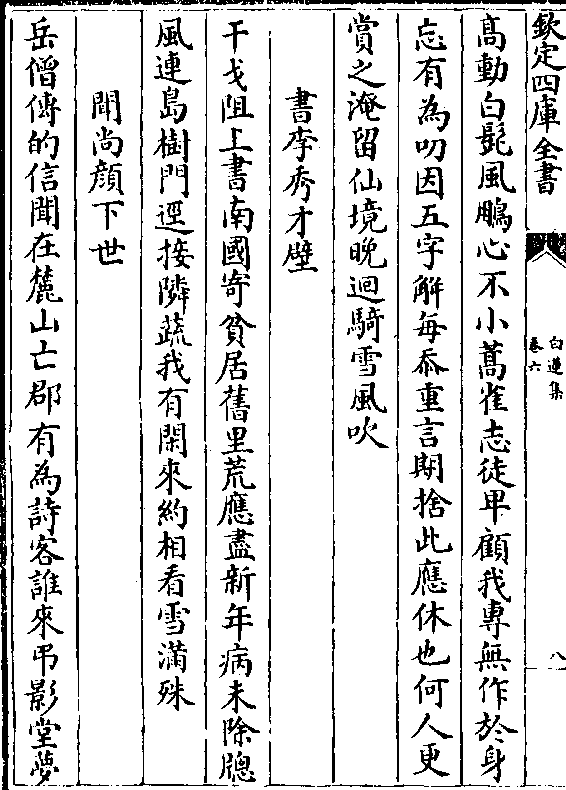 欽定四庫全書
白蓮集
卷六
八
髙動白髭風鵬心不小蒿雀志徒卑顧我專無作於身
忘有為叨因五字解每忝重言期捨此應休也何人更
賞之淹留仙境晚迴騎雪風吹
書李秀才壁
干戈阻上書南國寄貧居舊里荒應盡新年病未除牕
風連島樹門逕接隣蔬我有閑來約相看雪滿殊
聞尚顔下世
岳僧傳的信聞在麓山亡郡有為詩客誰來弔影堂夢